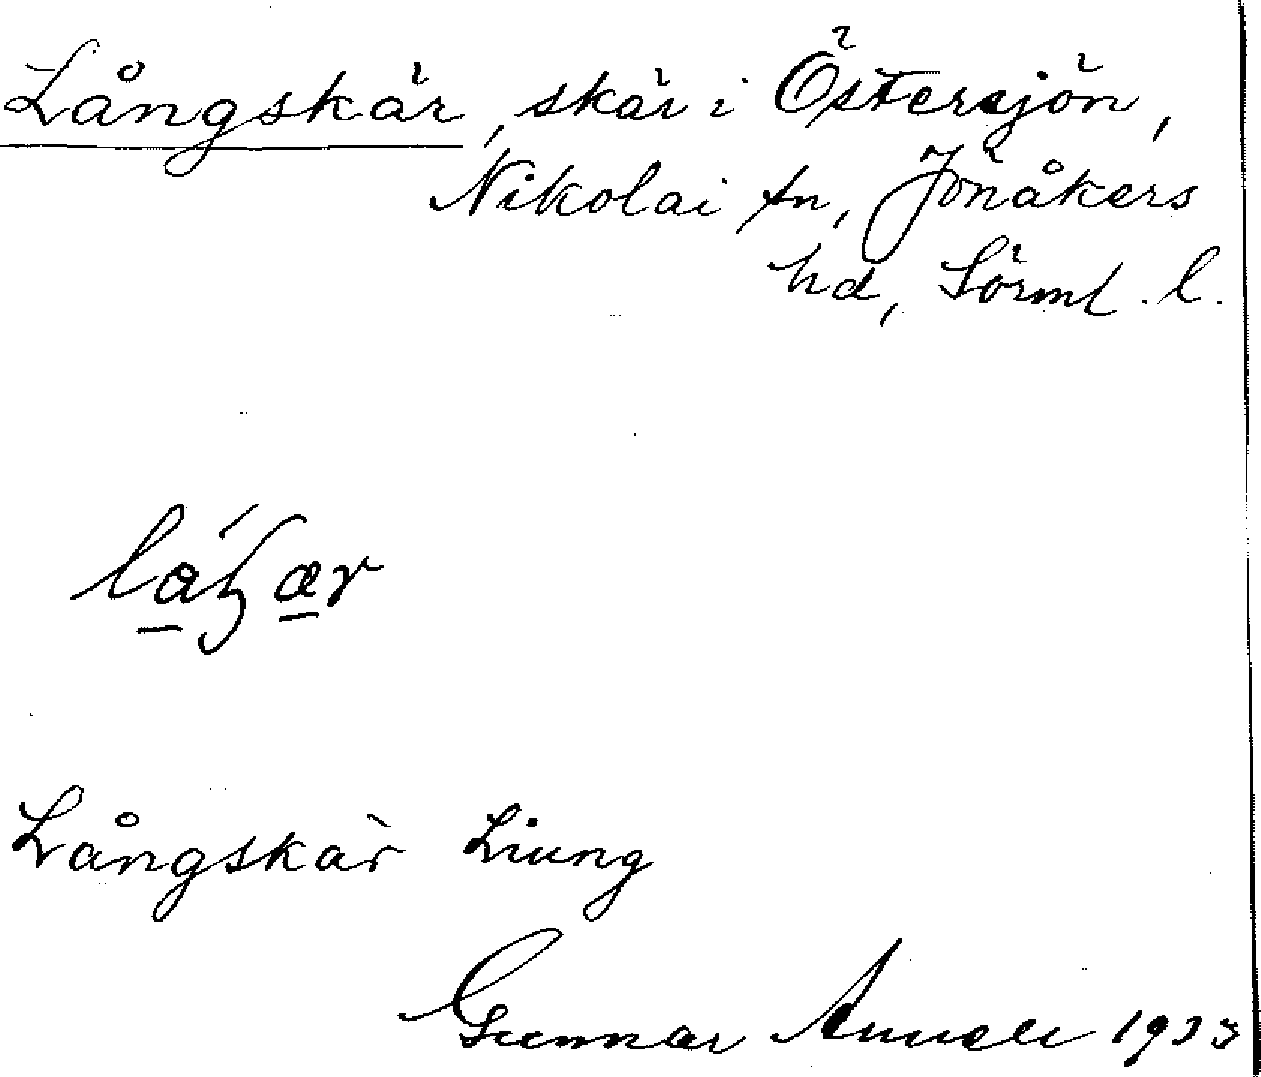 Långskär, skär i Östersjön,
Nikolai sn, Jönåkers
hd, Sörml. l.
Långskär Liung
Gunnar 1933